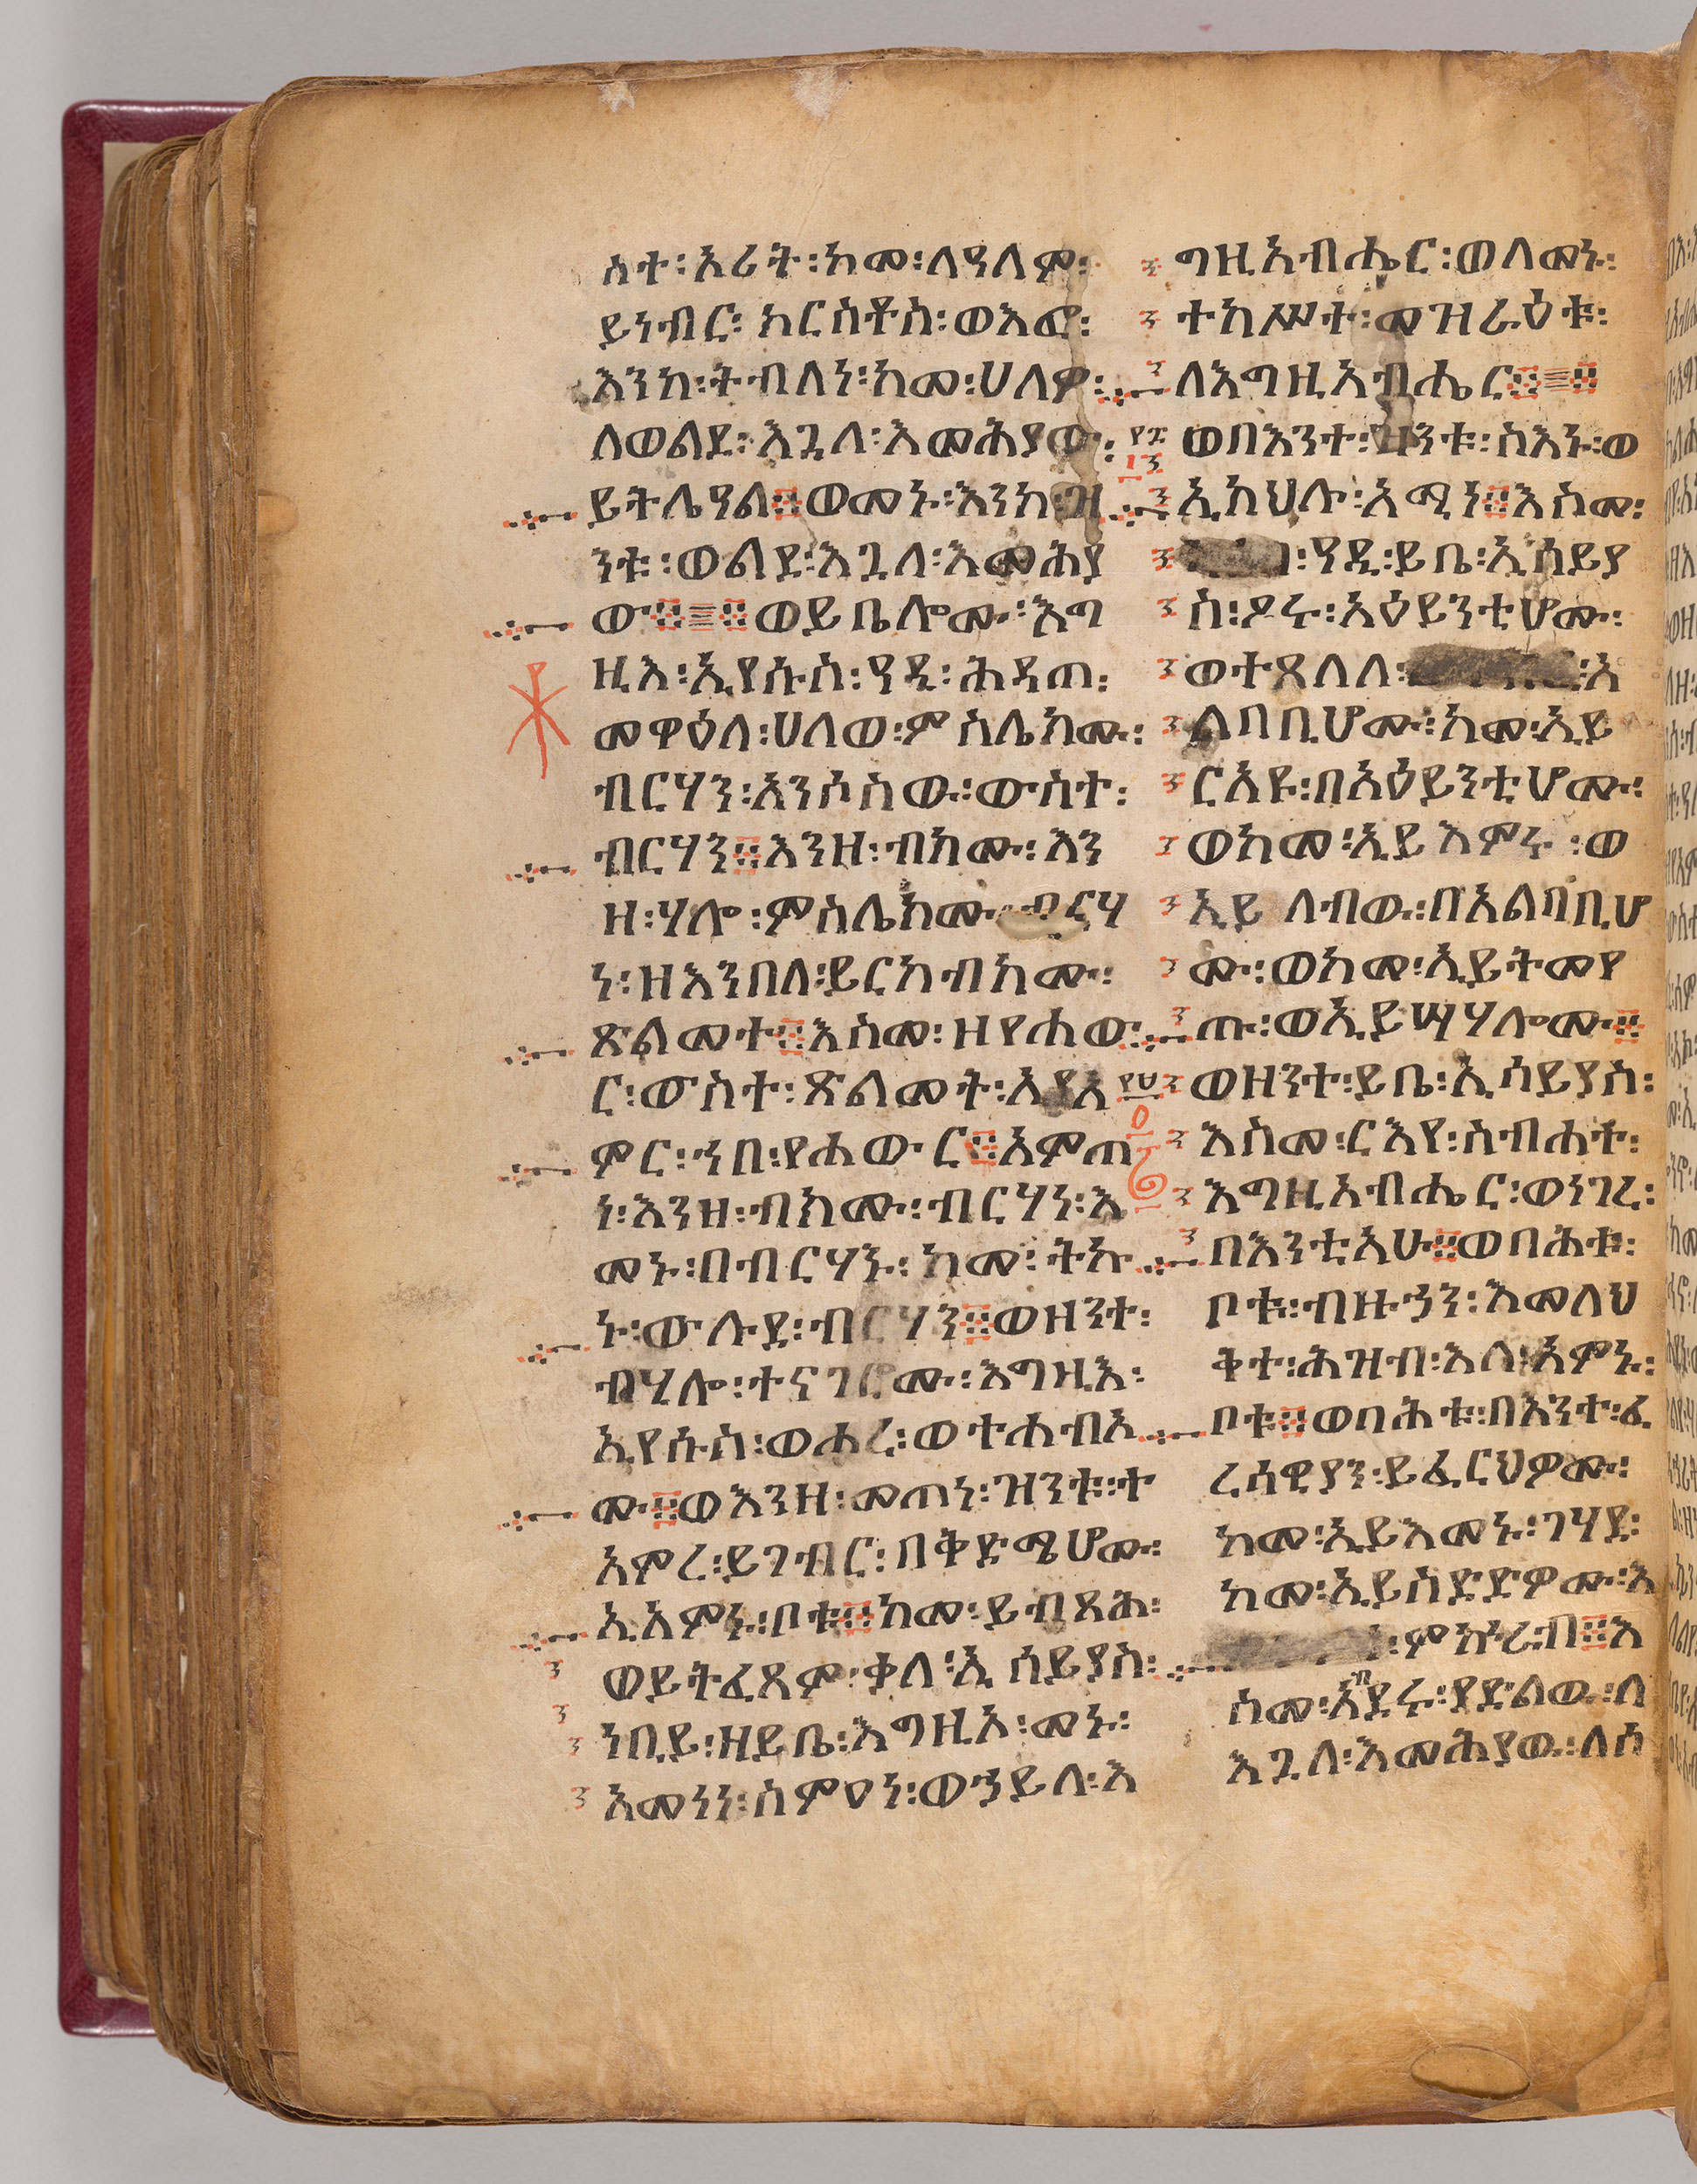 ስተ፡ኦሪት፡ከመ፡ለዓለም፡
ይነብር፡ክርስቶስ፡ወእፎ፡
እንከ፡ትብለነ፡ከመ፡ሀለዎ፡
ለወልደ፡እጓለ፡እመሕያው፡
ይትሌዓል፨ወመኑ፡እንከ፡ዝ
ንቱ፡ወልደ፡እጓለ፡እመሕያ
ው፨፨ወይቤሎሙ፡እግ
ዚእ፡ኢየሱስ፡ዓዲ፡ሕዳጠ፡
መዋዕለ፡ሀለወ፡ምስሌክሙ፡
ብርሃን፡አንሶስዉ፡ውስተ፡
ብርሃን፨እንዘ፡ብክሙ፡እን
ዘ፡ሃሎ፡ምስሌክሙ፡ብርሃ
ነ፡ዘእንበለ፡ይርከብክሙ፡
ጽልመተ፨እስመ፡ዘየሐው
ር፡ውስተ፡ጽልመት፡ኢያአ
ምር፡ኀበ፡የሐውር፨አምጠ
ነ፡እንዘ፡ብክሙ፡ብርሃነ፡እ
መኑ፡በብርሃኑ፡ከመ፡ትኩ
ኑ፡ውሉደ፡ብርሃን፨ወዘንተ፡
ብሂሎ፡ተናገሮሙ፡እግዚእ፡
ኢየሱስ፡ወሐረ፡ወተሐብአ
ሙ፨ወእንዘ፡መጠነ፡ዝንቱ፡ተ
አምረ፡ይገብር፡በቅድሜሆሙ፡
ኢአምኑ፡ቦቱ፨ከመ፡ይብጻሕ፡
ወይትፈጸም፡ቃለ፡ኢሰይያስ፡
ነቢይ፡ዘይቤ፡እግዚኦ፡መኑ፡
አመነነ፡ስምዐነ፡ወኀይለ፡እ
ግዚአብሔር፡ወለመኑ፡
ተከሥተ፡መዝራዕቱ፡
ለእግዚአብሔር፨፨
ወበእንተ፡ዝንቱ፡ስእኑ፡ወ
ኢክህሉ፡አሚነ፨እስመ፡
፡ዓዲ፡ይቤ፡ኢሰይያ
ስ፡ዖሩ፡አዕይንቲሆሙ፡
ወተጸለለ፡ ፡አ
ልባቢሆሙ፡ከመ፡ኢይ
ርአዩ፡በአዕይንቲሆሙ፡
ወከመ፡ኢይእምሩ፡ወ
ኢይለብዉ፡በአልባቢሆ
ሙ፡ወከመ፡ኢይትመየ
ጡ፡ወኢይሣሃሎሙ፨
ወዘንተ፡ይቤ፡ኢሳይያስ፡
እስመ፡ርእየ፡ስብሐቶ፡
እግዚአብሔር፡ወነገረ፡
በእንቲአሁ፨ወባሕቱ፡
ቦቱ፡ብዙኃን፡እመለህ
ቅተ፡ሕዝብ፡እለ፡አምኑ፡
ቦቱ፨ወባሕቱ፡በእንተ፡ፈ
ሪሰዊያን፡ይፈርህዎሙ፡
ከመ፡ኢይእመኑ፡ገሃደ፡
ከመ፡ኢይስድድዎሙ፡እ
፡ምኵራብ፨እ
ስመ፡አብደሩ፡ያድልዉ፡ለ
እጓለ፡እመሕያው፡ለሰ